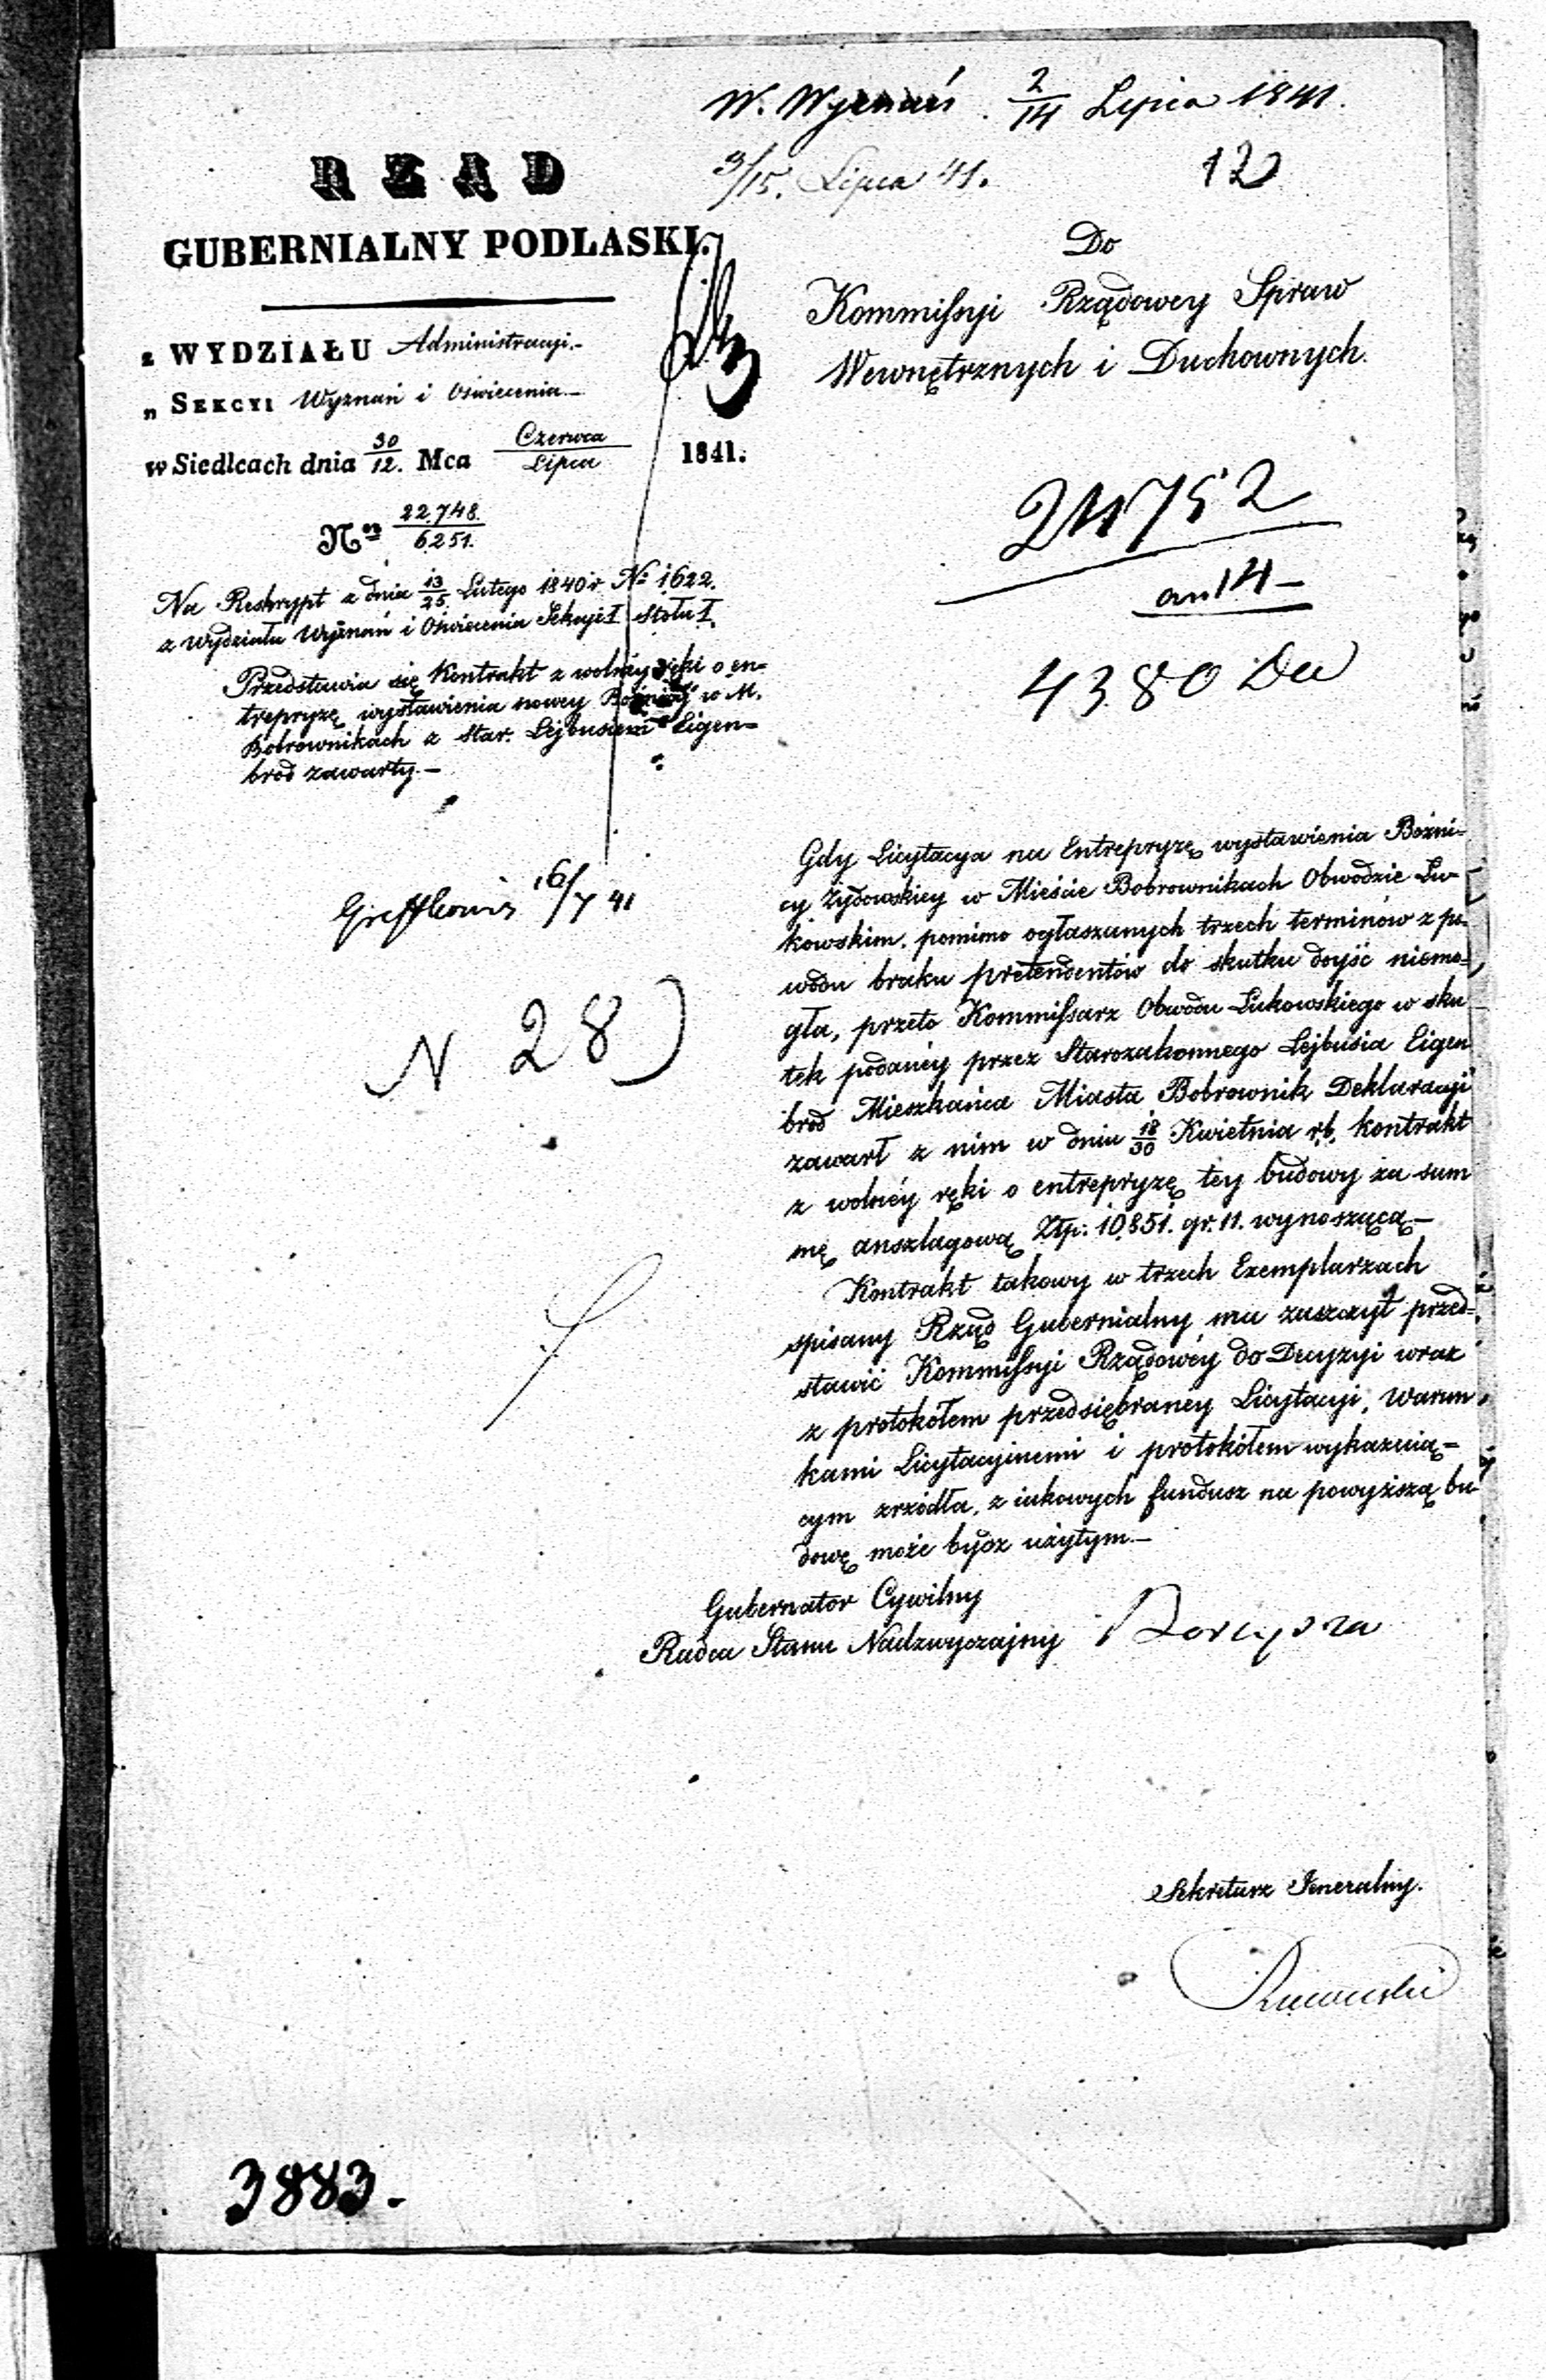 W. Wyznań. 2/14 Lipca 1841.
3/15. Lipca 41.
120
RZĄD
GUBERNIALNY PODLASKI.
z WYDZIAŁU Administracji.–
„ SEKCYI Wyznań i Oświecenia.–
w Siedlcach dnia 30/12. Mca Czerwca/Lipca 1841.
Nro 22.748./6251.
Na Reskrypt z dnia 13/25. Lutego 1840 r. No 1622.
z Wydziału Wyznań i Oświecenia Sekcji I Stołu I.
Przedstawia się Kontrakt z wolney ręki o en=
trepryzę wystawienia nowey Bożnicy w M.
Bobrownikach z Star. Lejbusiem Eigen=
brod zawarty.–
16/7 41
N 28)
Do
Kommissyi Rządowey Spraw
Wewnętrznych i Duchownych.
24752
an 14–
4380
Gdy Licytacya na Entrepryzę wystawienia Bożni=
cy Żydowskiey w Mieście Bobrownikach Obwodzie Łu=
kowskim, pomimo ogłaszanych trzech terminów z po=
wodu braku pretendentów do skutku doyść niemo=
gła, przeto Kommissarz Obwodu Łukowskiego w sku
tek podanéy przez Starozakonnego Lejbusia Eigen
brod Mieszkańca Miasta Bobrownik Deklaracyi
zawarł z nim w dniu 18/30 Kwietnia r.b. kontrakt
z wolnéy ręki o entrepryzę tey budowy za sum
mę anszlagową Złp: 10,851. gr. 11. wynoszącą.–
Kontrakt takowy w trzech Exemplarzach
spisany Rząd Gubernialny ma zaszczyt przed=
stawić Kommissyi Rządowéy do Decyzyi wraz
z protokołem przedsiębranéy Licytacyi, warun
kami Licytacyinemi i protokółem wykazują=
cym zrzódła, z iakowych fundusz na powyższą bu=
dowę może bydz użytym.–
Gubernator Cywilny
Radca Stanu Nadzwyczajny
Sekretarz Jeneralny.
3883.